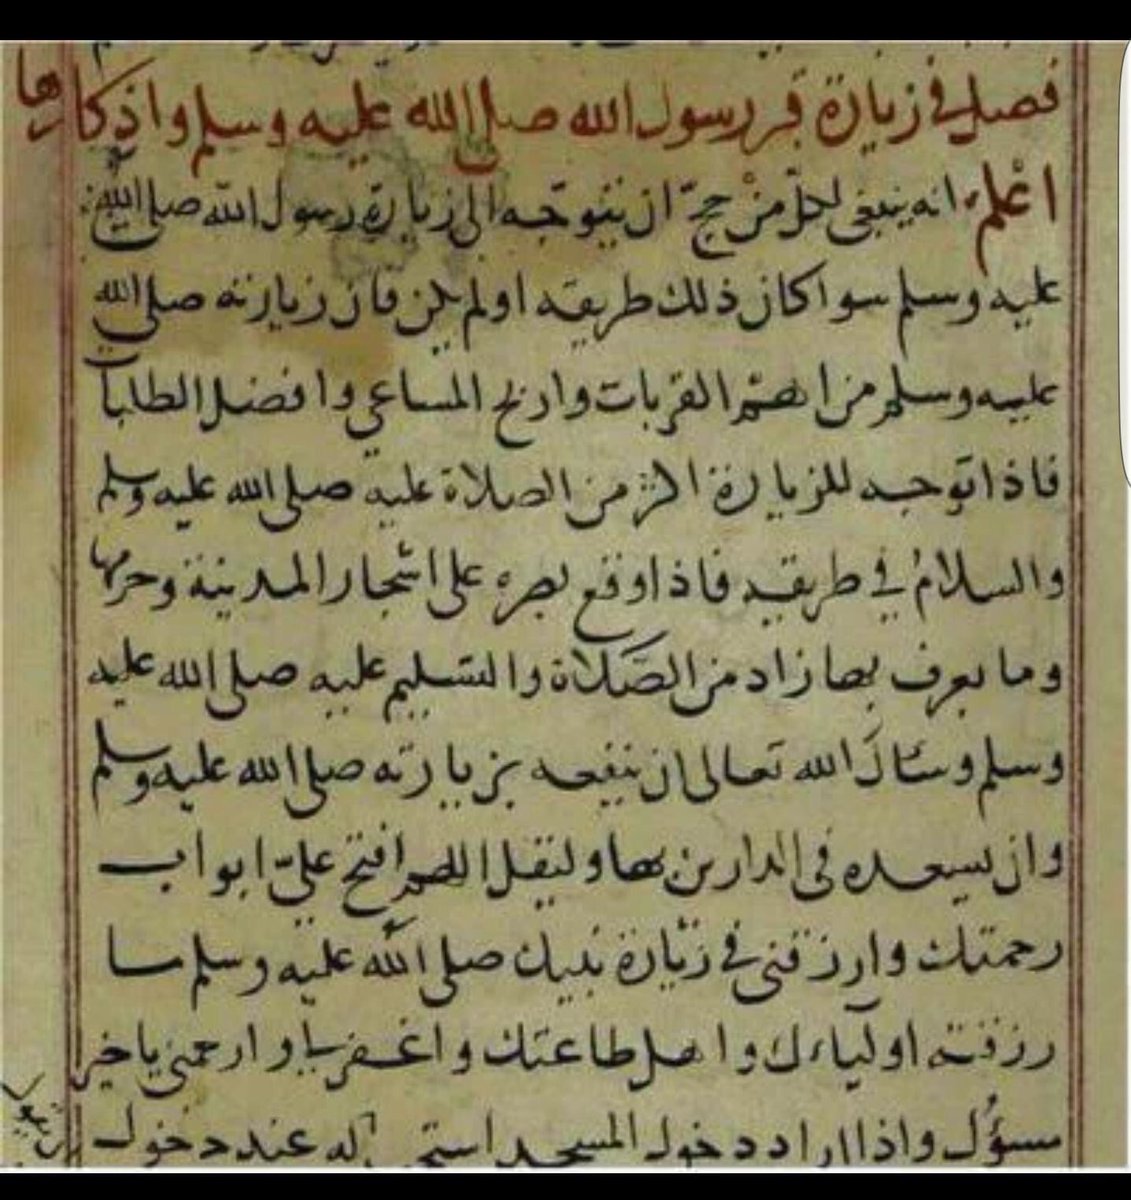 فصل في زيارة قبر رسول الله صلى الله عليه وسلم واذكارها
اعلم انه ينبغي لكل من حج ان يتوجه الى زيارة رسول الله صلى الله
عليه وسلم سوا كان ذلك طريقه او لم يكن فان زيارته صلى الله
عليه وسلم من اهم القربات واربح المساعي وافضل الطلبات
فاذا توجه للزيارة اكثر من الصلاة عليه صلى الله عليه وسلم
والسلام في طريقه فاذا وقع بصره على اشجار المدينة وحرمها
وما يعرف بها زاد من الصلاة والتسليم عليه صلى الله عليه
وسلم وسال الله تعالى ان ينفعه بزيارته صلى الله عليه وسلم
وان يسعده في الدارين بها وليقل اللهم افتح علي ابواب
رحمتك وارزقني في زيارة نبيك صلى الله عليه وسلم ما
رزقته اولياءك واهل طاعتك واغفر لي وارحمني يا خير
مسؤل واذا اراد دخول المسجد استحب له عند دخول